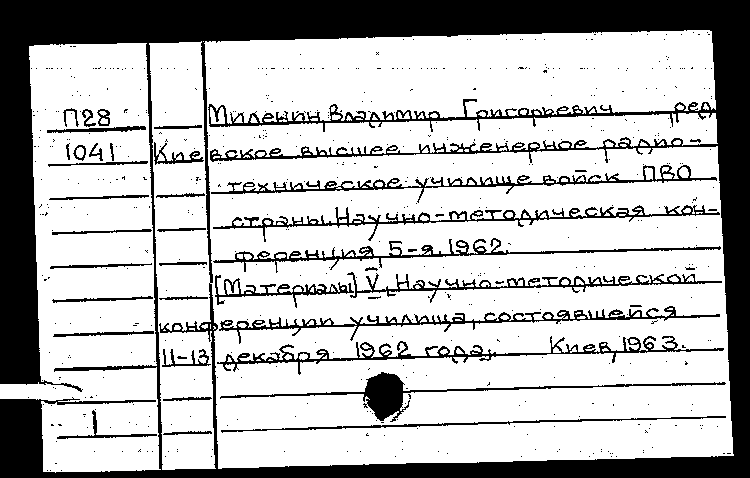 П28 Миленин, Владимир Григорьевич, ред.
1041 Киевское высшее инженерное радио-
техническое училище войск ПВО
страны. Научно-методическая кон-
ференция, 5-я. 1962.
[Материалы] V Научно-методической
конференции училища, состоявшейся
11-13 декабря 1962 года. Киев, 1963.
1